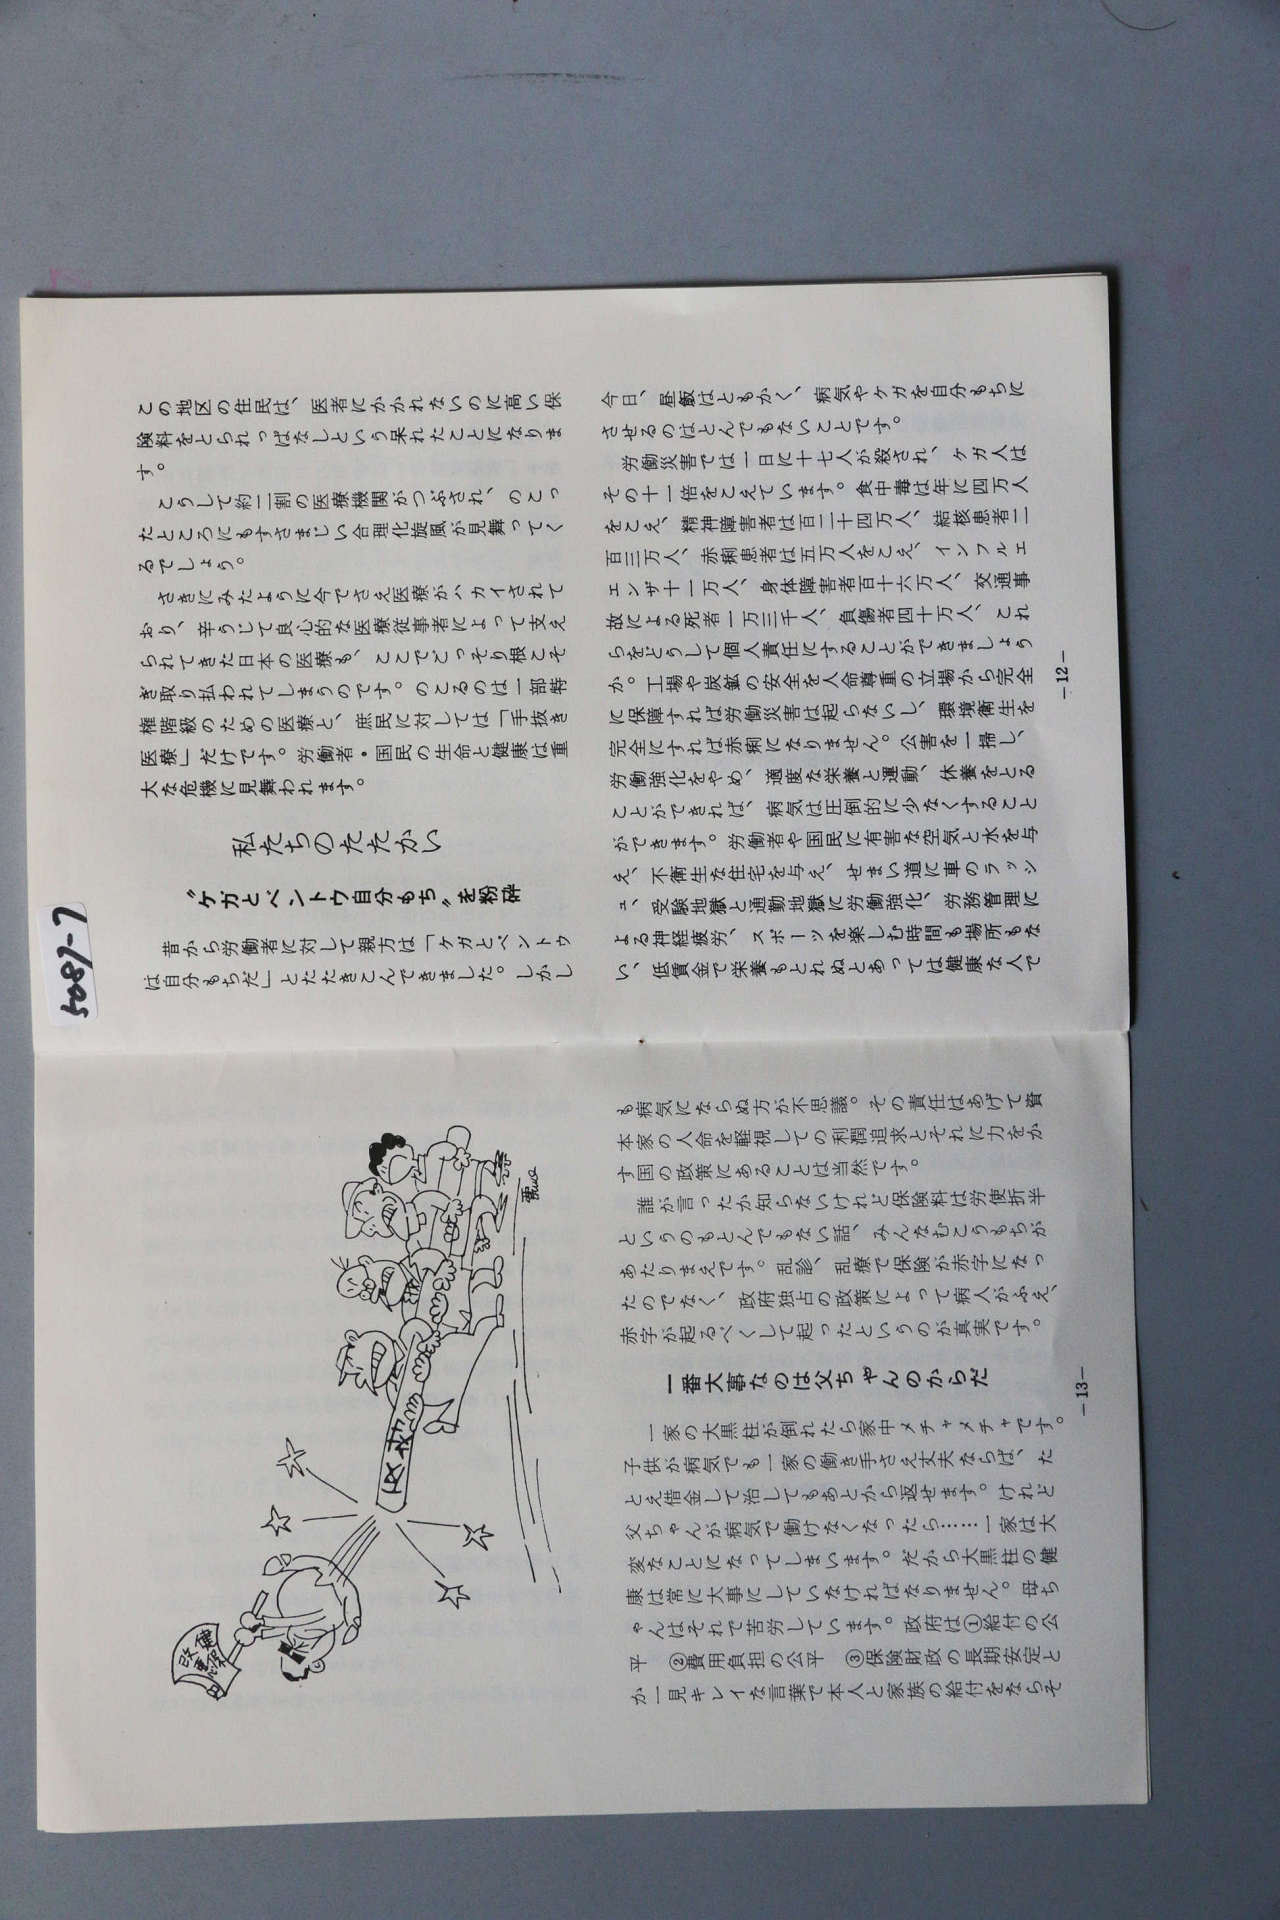 この地区の住民は、医者にかかれないのに高い保
険料をとられっぱなしという呆れたことになりま
す。
こうして約二割の医療機関がつぶされ、のこっ
たところにもすさまじい合理化旋風が見舞ってく
るでしょう。
さきにみたように今でさえ医療がハカイされて
おり、辛うじて良心的な医療従事者によって支え
られてきた日本の医療も、ここでごっそり根こそ
ぎ取り払われてしまうのです。のこるのは一部特
権階級のための医療と、庶民に対しては「手抜き
医療」だけです。労働者・国民の生命と健康は重
大な危機に見舞われます。
私たちのたたかい
“ケガとベントウ自分もち”を粉砕
昔から労働者に対して親方は「ケガとベントウ
は自分もちだ」とたたきこんできました。しかし
今日、昼飯はともかく、病気やケガを自分もちに
させるのはとんでもないことです。
労働災害では一日に十七人が殺され、ケガ人は
その十一倍をこえています。食中毒は年に四万人
をこえ、精神障害者は百二十四万人、結核患者二
百三万人、赤痢患者は五万人をこえ、インフルエ
エンザ十一万人、身体障害者百十六万人、交通事
故による死者一万三千人、負傷者四十万人、これ
らをどうして個人責任にすることができましょう
か。工場や炭鉱の安全を人命尊重の立場から完全
に保障すれば労働災害は起らないし、環境衛生を
完全にすれば赤痢になりません。公害を一掃し、
労働強化をやめ、適度な栄養と運動、休養をとる
ことができれば、病気は圧倒的に少なくすること
ができます。労働者や国民に有害な空気と水を与
え、不衛生な住宅を与え、せまい道に車のラッシ
ュ、受験地獄と通勤地獄に労働強化、労務管理に
よる神経疲労、スポーツを楽しむ時間も場所もな
い、低賃金で栄養もとれぬとあっては健康な人で
—12—
5087-7
改悪
健保
反対
も病気にならぬ方が不思議。その責任はあげて資
本家の人命を軽視しての利潤追求とそれに力をか
す国の政策にあることは当然です。
誰が言ったか知らないけれど保険料は労使折半
というのもとんでもない話、みんなむこうもちが
あたりまえです。乱診、乱療で保険が赤字になっ
たのでなく、政府独占の政策によって病人がふえ、
赤字が起るべくして起ったというのが真実です。
一番大事なのは父ちゃんのからだ
一家の大黒柱が倒れたら家中メチャメチャです。
子供が病気でも一家の働き手さえ丈夫ならば、た
とえ借金して治してもあとから返せます。けれど
父ちゃんが病気で働けなくなったら……一家は大
変なことになってしまいます。だから大黒柱の健
康は常に大事にしていなければなりません。母ち
ゃんはそれで苦労しています。政府は①給付の公
平　②費用負担の公平　③保険財政の長期安定と
か一見キレイな言葉で本人と家族の給付をならそ
—13—